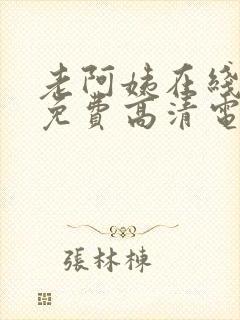 老阿姨在线
免費高清電
張林棟